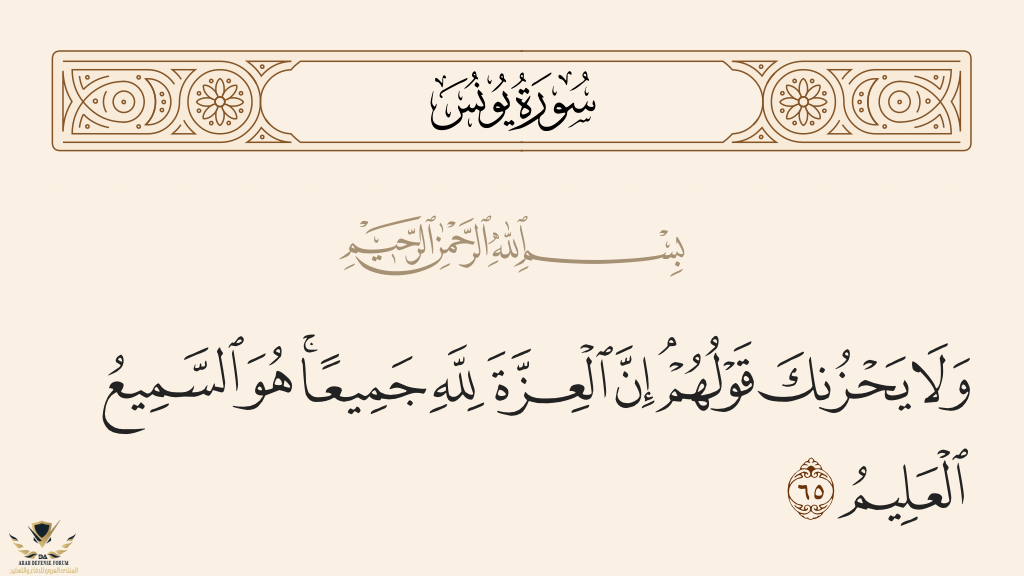 سُورَةُ يُونُسَ
بِسْمِ ٱللَّهِ ٱلرَّحْمَٰنِ ٱلرَّحِيمِ
وَلَا يَحْزُنكَ قَوْلُهُمْ ۘ إِنَّ ٱلْعِزَّةَ لِلَّهِ جَمِيعًا ۚ هُوَ ٱلسَّمِيعُ
ٱلْعَلِيمُ ٦٥
ARAB DEFENSE FORUM
المنتدى العربي للدفاع والتسليح